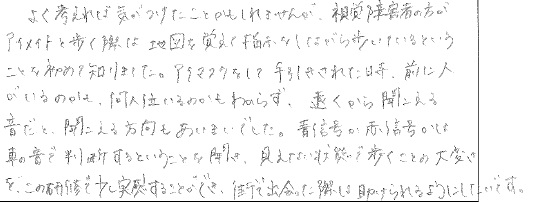 よく考えれば気がつけたことかもしれませんが、視覚障害者の方が
アイメイトと歩く際は地図を覚えて指示をしながら歩いているという
ことを初めて知りました。アイマスクをして手引きされた時、前に人
がいるのかも、何人位いるのかもわからず、遠くから聞こえる
音だと、聞こえる方向もあいまいでした。青信号か赤信号かは
車の音で判断するということを聞き、見えない状態で歩くことの大変さ
を、この研修で少し実感することができ、街で出会った際は助けられるようにしたいです。